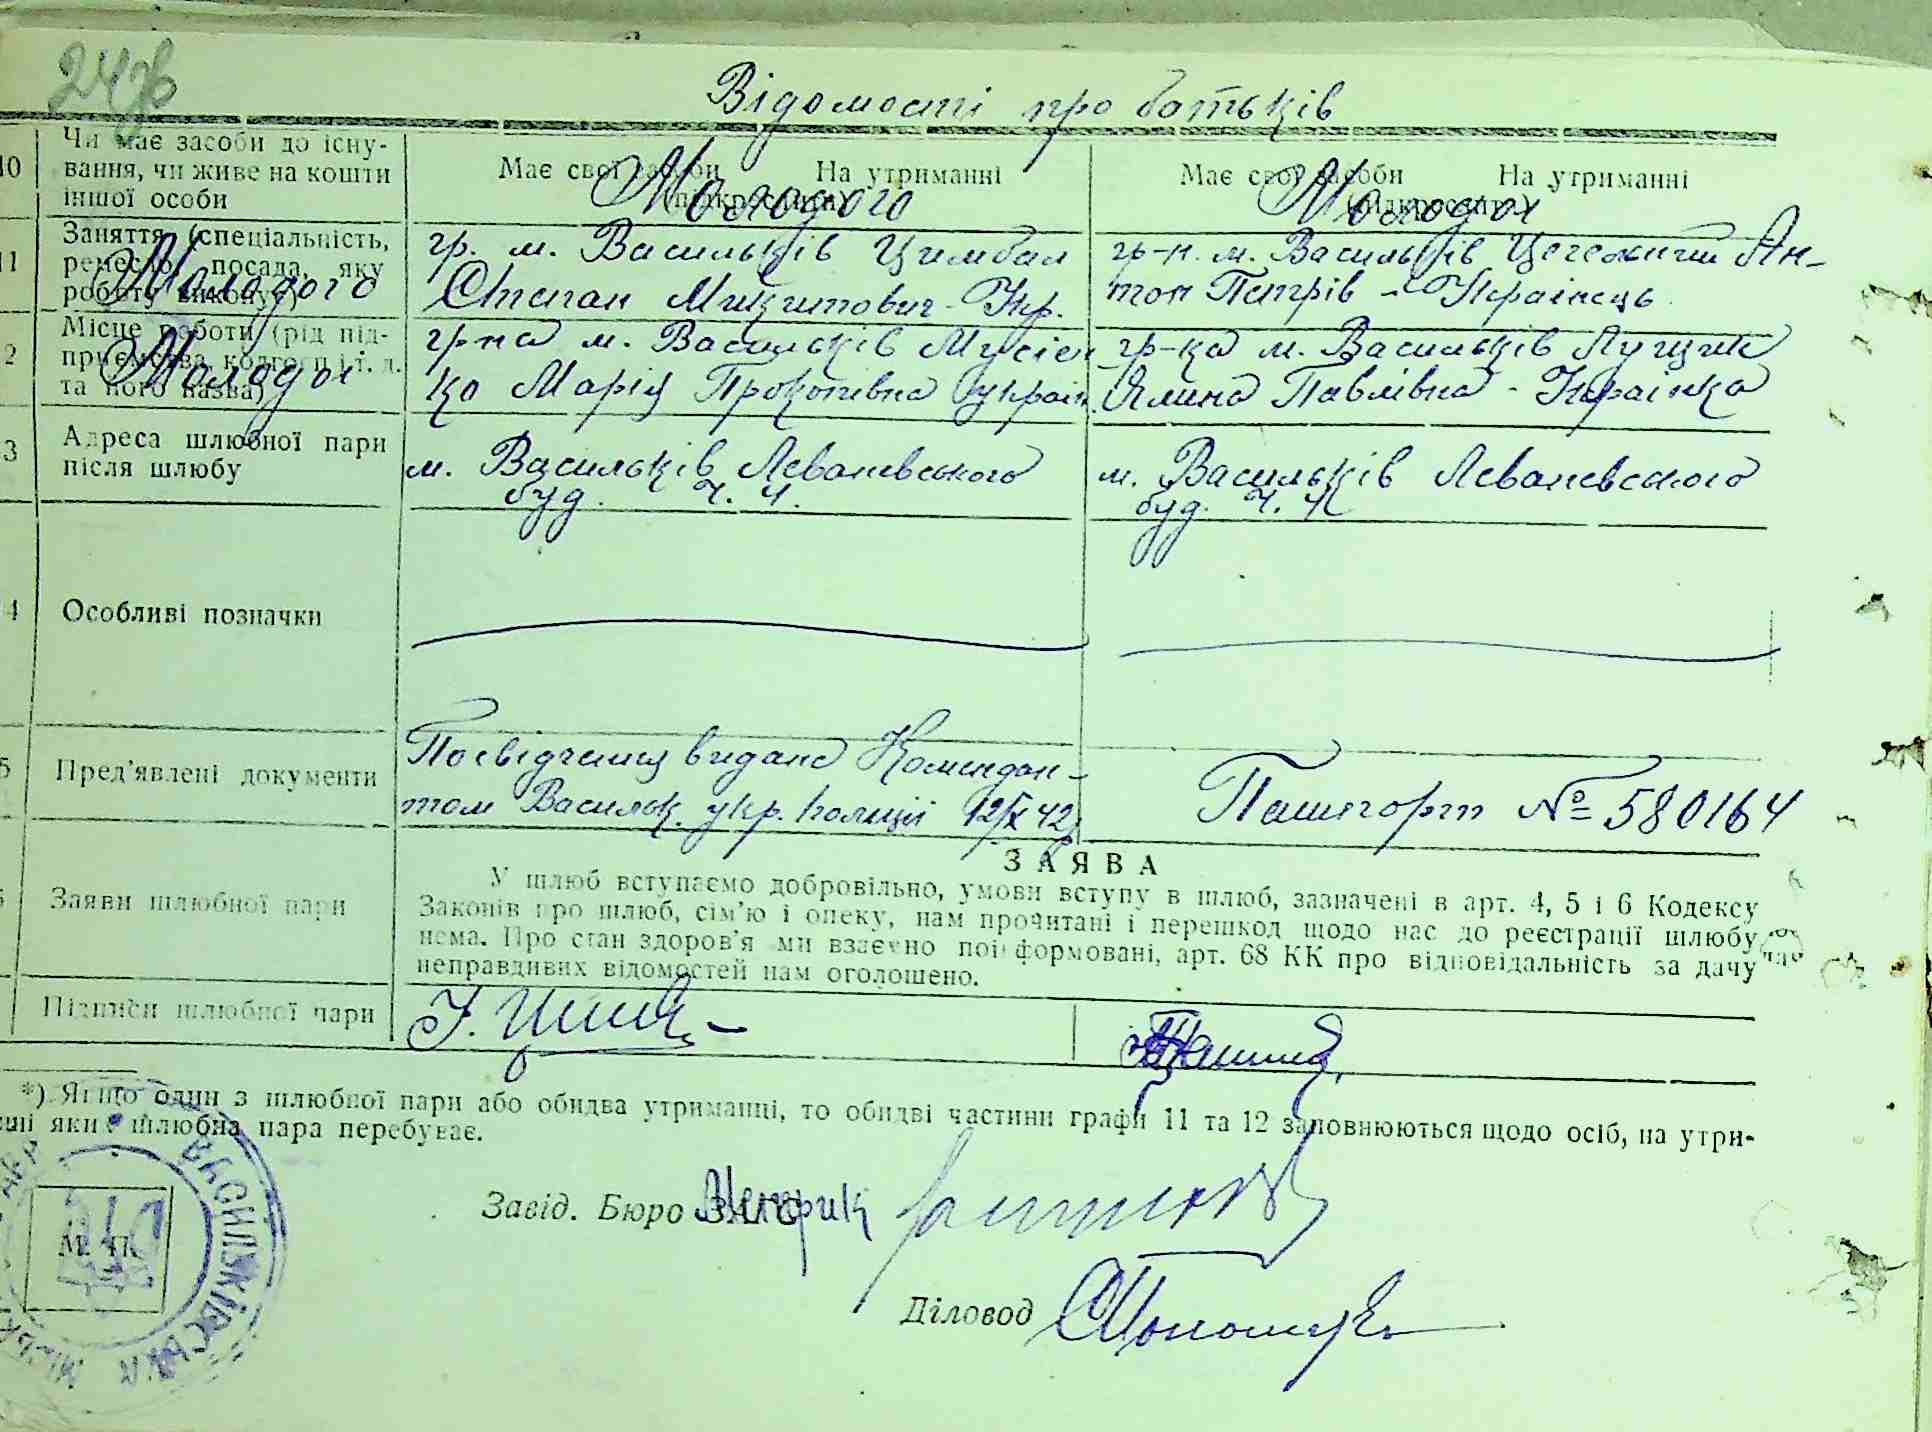 24 зв
Відомості про батьків
10 Чи має засоби до існу-
вання, чи живе на кошти
іншої особи
Має свої засоби На утриманні
(підкреслити)
Молодого
Має свої засоби На утриманні
(підкреслити)
Молодої
11 Заняття (спеціальність,
ремесло, посада, яку
роботу виконує)
Молодого
гр. м. Васильків Цимбал
Степан Микитович - Укр.
гр-н. м. Васильків Ан-
тон Петрів - Українець
2 Місце роботи (рід під-
приємства, колгосп і т. д.
та його назва)
Молодої
гр-на м. Васильків Мусієн
ко Марія Прокопівна україн.
гр-ка м. Васильків Лущик
Ялина Павлівна - Українка
3 Адреса шлюбної пари
після шлюбу
м. Васильків Леваневського
буд. ч. 4.
м. Васильків Леваневського
буд. ч. 4
4 Особливі позначки
5 Пред'явлені документи
Посвідчення видане Комендан-
том Васильк. укр. поліції 12/X 42 р
Пашпорт № 580164
Заяви шлюбної пари
ЗАЯВА
У шлюб вступаємо добровільно, умови вступу в шлюб, зазначені в арт. 4, 5 і 6 Кодексу
Законів про шлюб, сім'ю і опеку, нам прочитані і перешкод щодо нас до реєстрації шлюбу
нема. Про стан здоров'я ми взаємно поінформовані, арт. 68 КК про відповідальність за дачу
неправдивих відомостей нам оголошено.
Підписи шлюбної пари
*) Якщо один з шлюбної пари або обидва утриманці, то обидві частини графи 11 та 12 заповнюються щодо осіб, на утри-
нні яких шлюбна пара перебуває.
Завід. Бюро ЗАГС
Діловод
М. П.
ВАСИЛЬКІВСЬКА